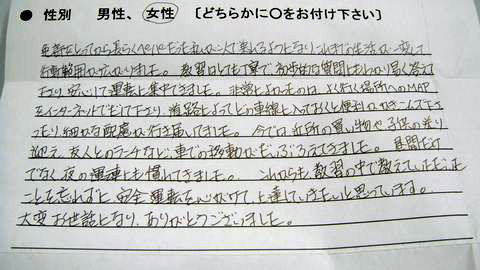 ● 性別　男性、女性　〔どちらかに○をお付け下さい〕
免許をとってから長らくペーパーだった私が一人で乗れるようになりこれまでの生活が一変して
行動範囲が広がりました。教習はとても丁寧で初歩的な質問にもわかり易く答えて
下さり安心して運転に集中できました。非常によかったのは、よく行く場所へのMAP
をインターネットで出して下さり、道路によってどの車線に入っておくと便利かなど
ったり細かな配慮が行き届いてました。今では近所の買い物や子供の送り
迎え、友人とのランチなど、車での移動がだいぶふえてきました。昼間だけ
でなく夜の運転にも慣れてきました。これからも教習の中で教えていただいた
ことを忘れずに安全運転を心がけて上達していきたいと思っています。
大変お世話になり、ありがとうございました。